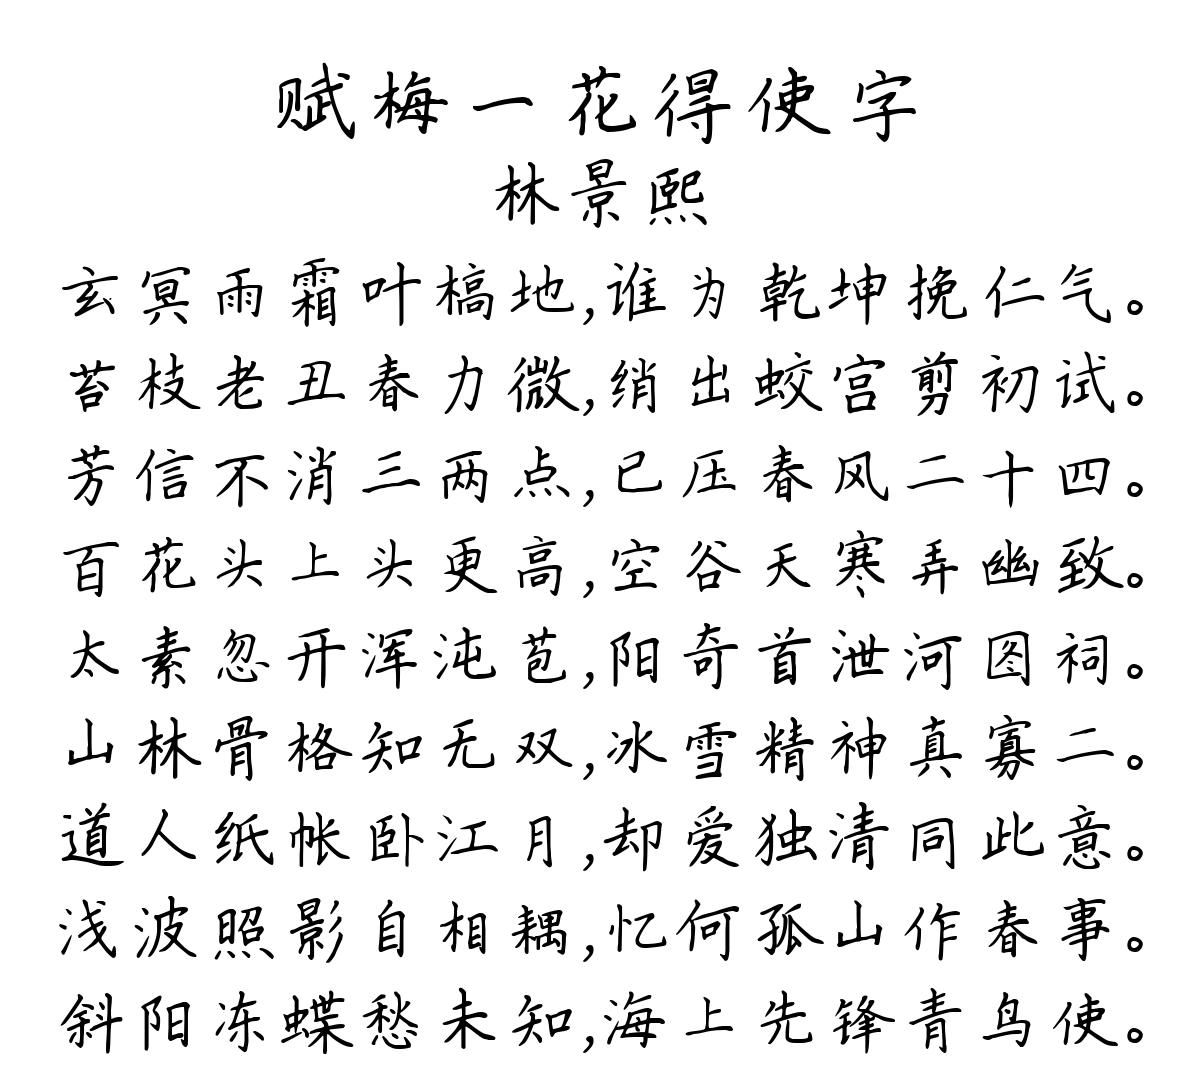 赋梅一花得使字
林景熙
玄冥雨霜叶槁地,谁为乾坤挽仁气。
苔枝老丑春力微,绡出蛟宫剪初试。
芳信不消三两点,已压春风二十四。
百花头上头更高,空谷天寒弄幽致。
太素忽开浑沌苞,阳奇首泄河图祠。
山林骨格知无双,冰雪精神真寡二。
道人纸帐卧江月,却爱独清同此意。
浅波照影自相耦,忆何孤山作春事。
斜阳冻蝶愁未知,海上先锋青鸟使。